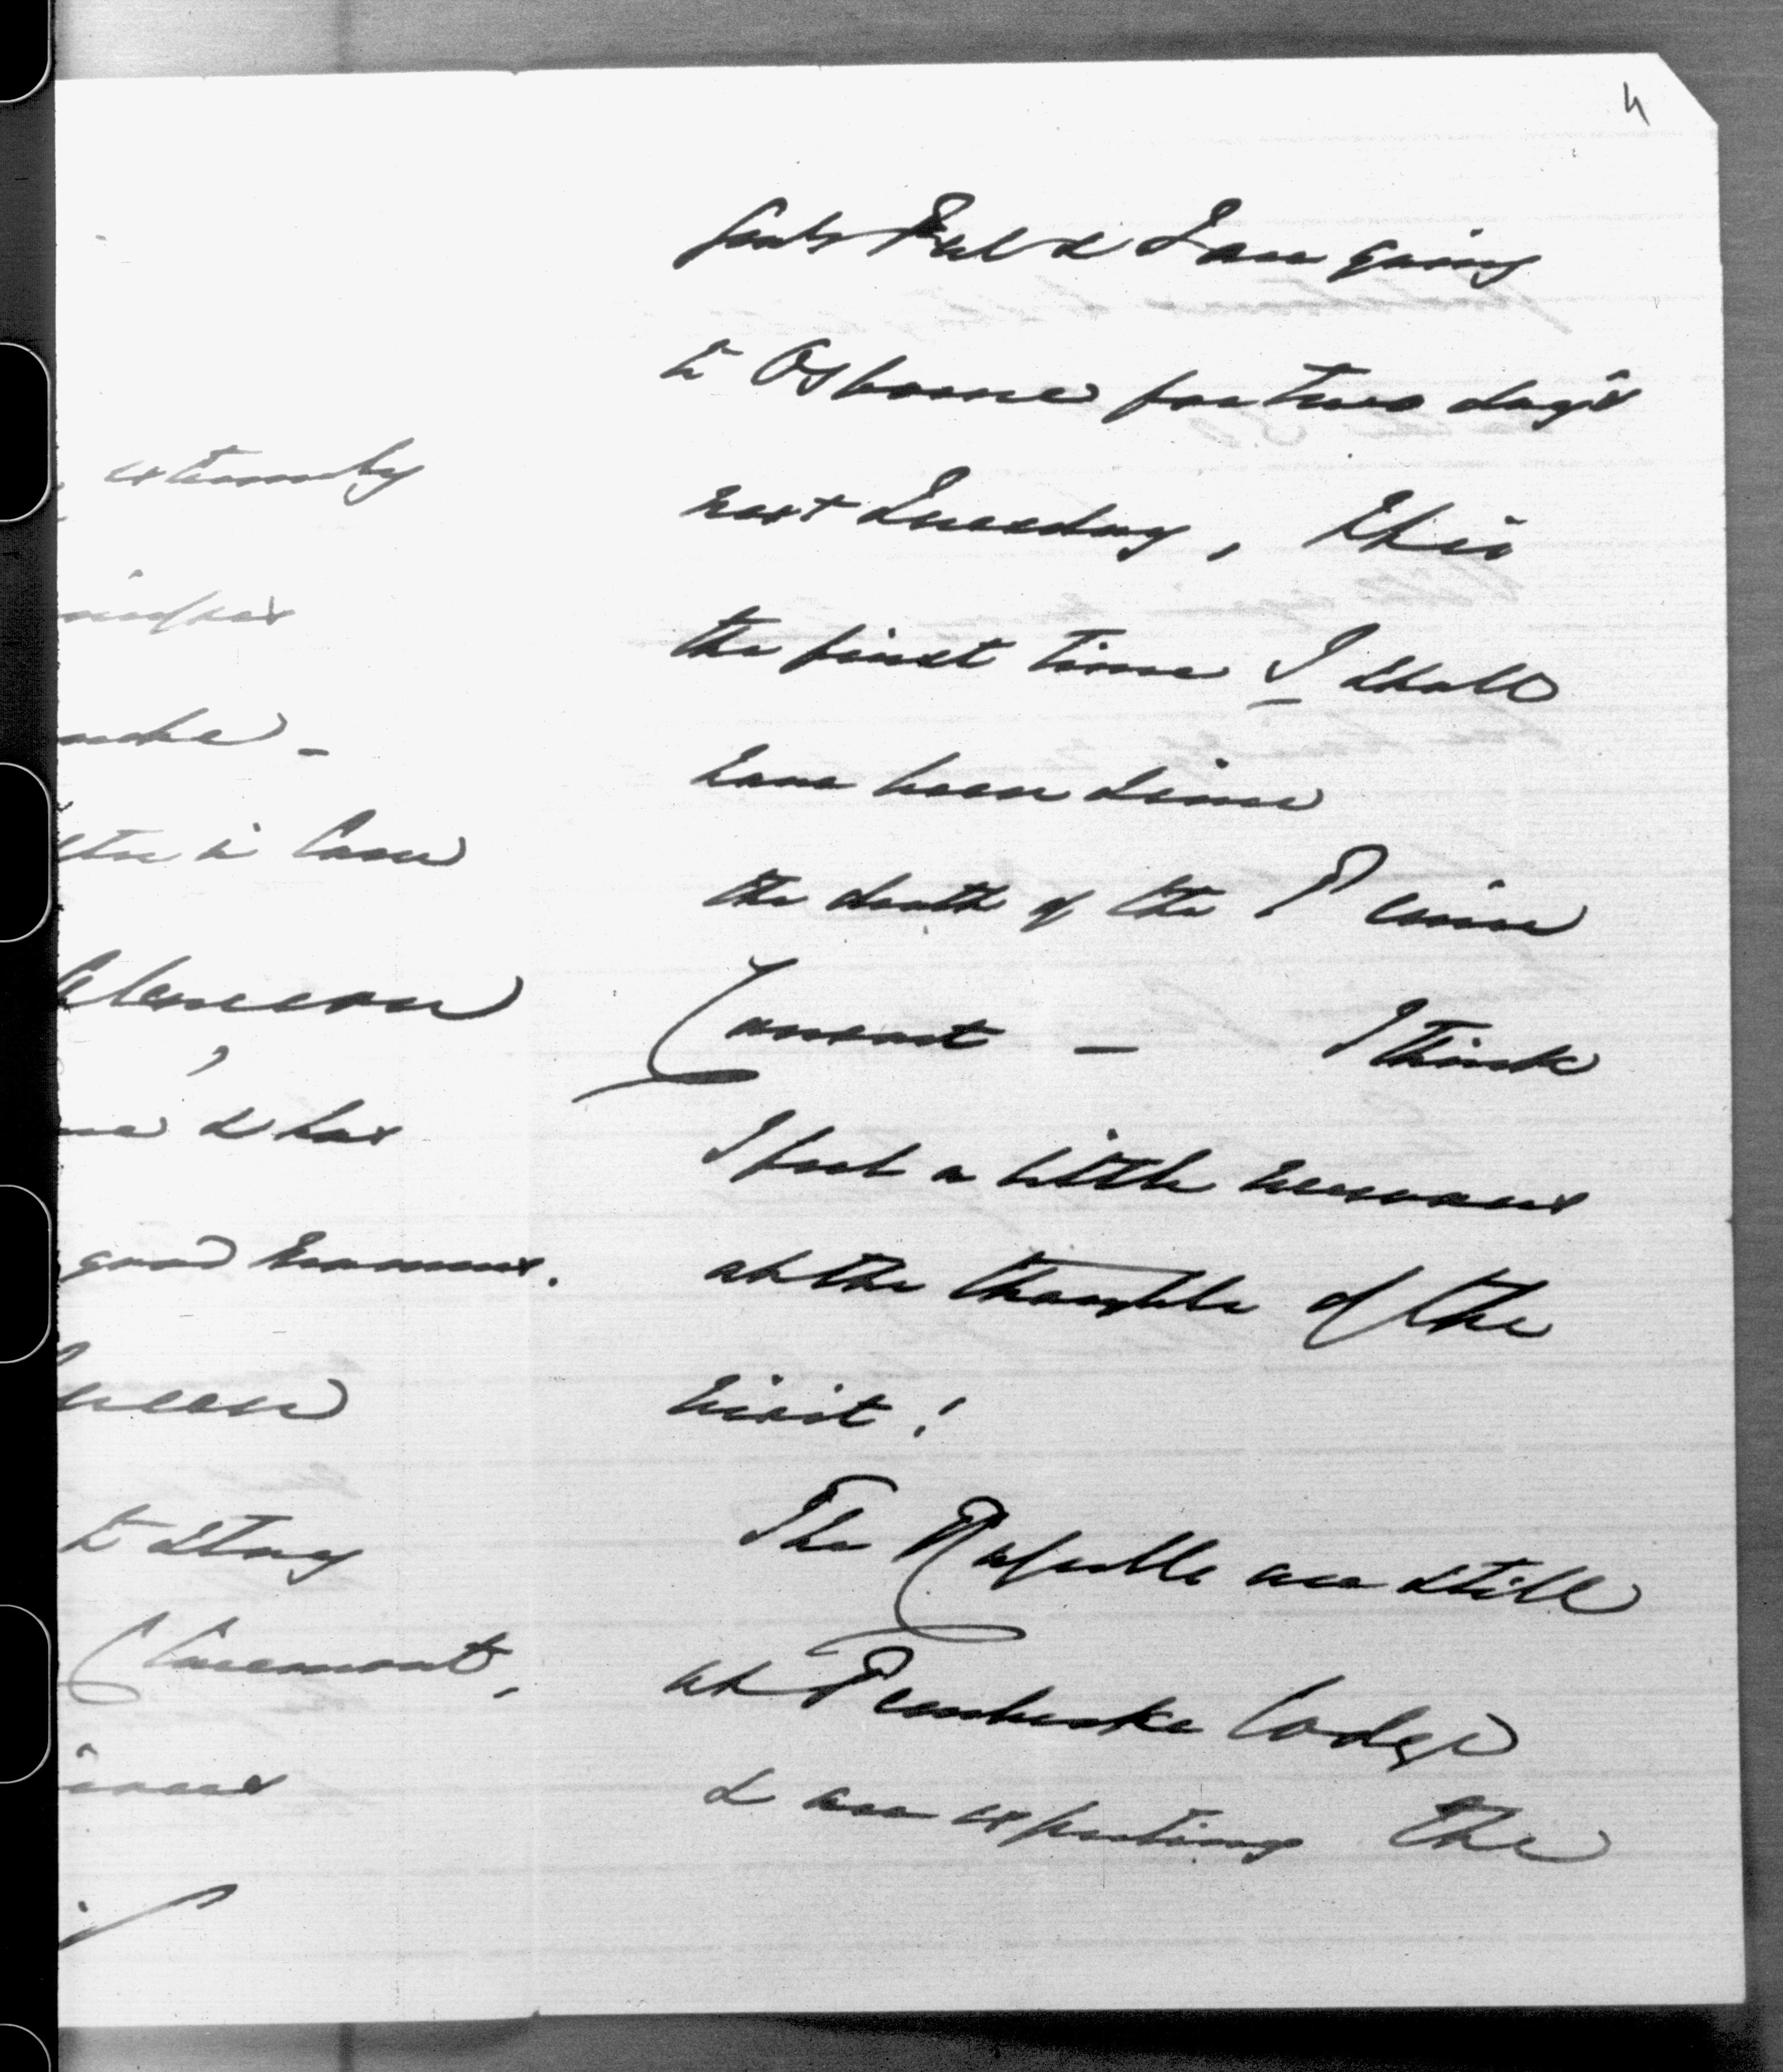 4
extremely
to Cannes
Alencon
& has
good humour.
Queen
to stay
Claremont,
& I am going
to Osborne for two days
next Tuesday, this
the first time I shall
have been since
the death of the Prince
Consort — I think
I feel a little nervous
at the thought of the
visit!
The Russells are still
at Pembroke Lodge
& are expecting the